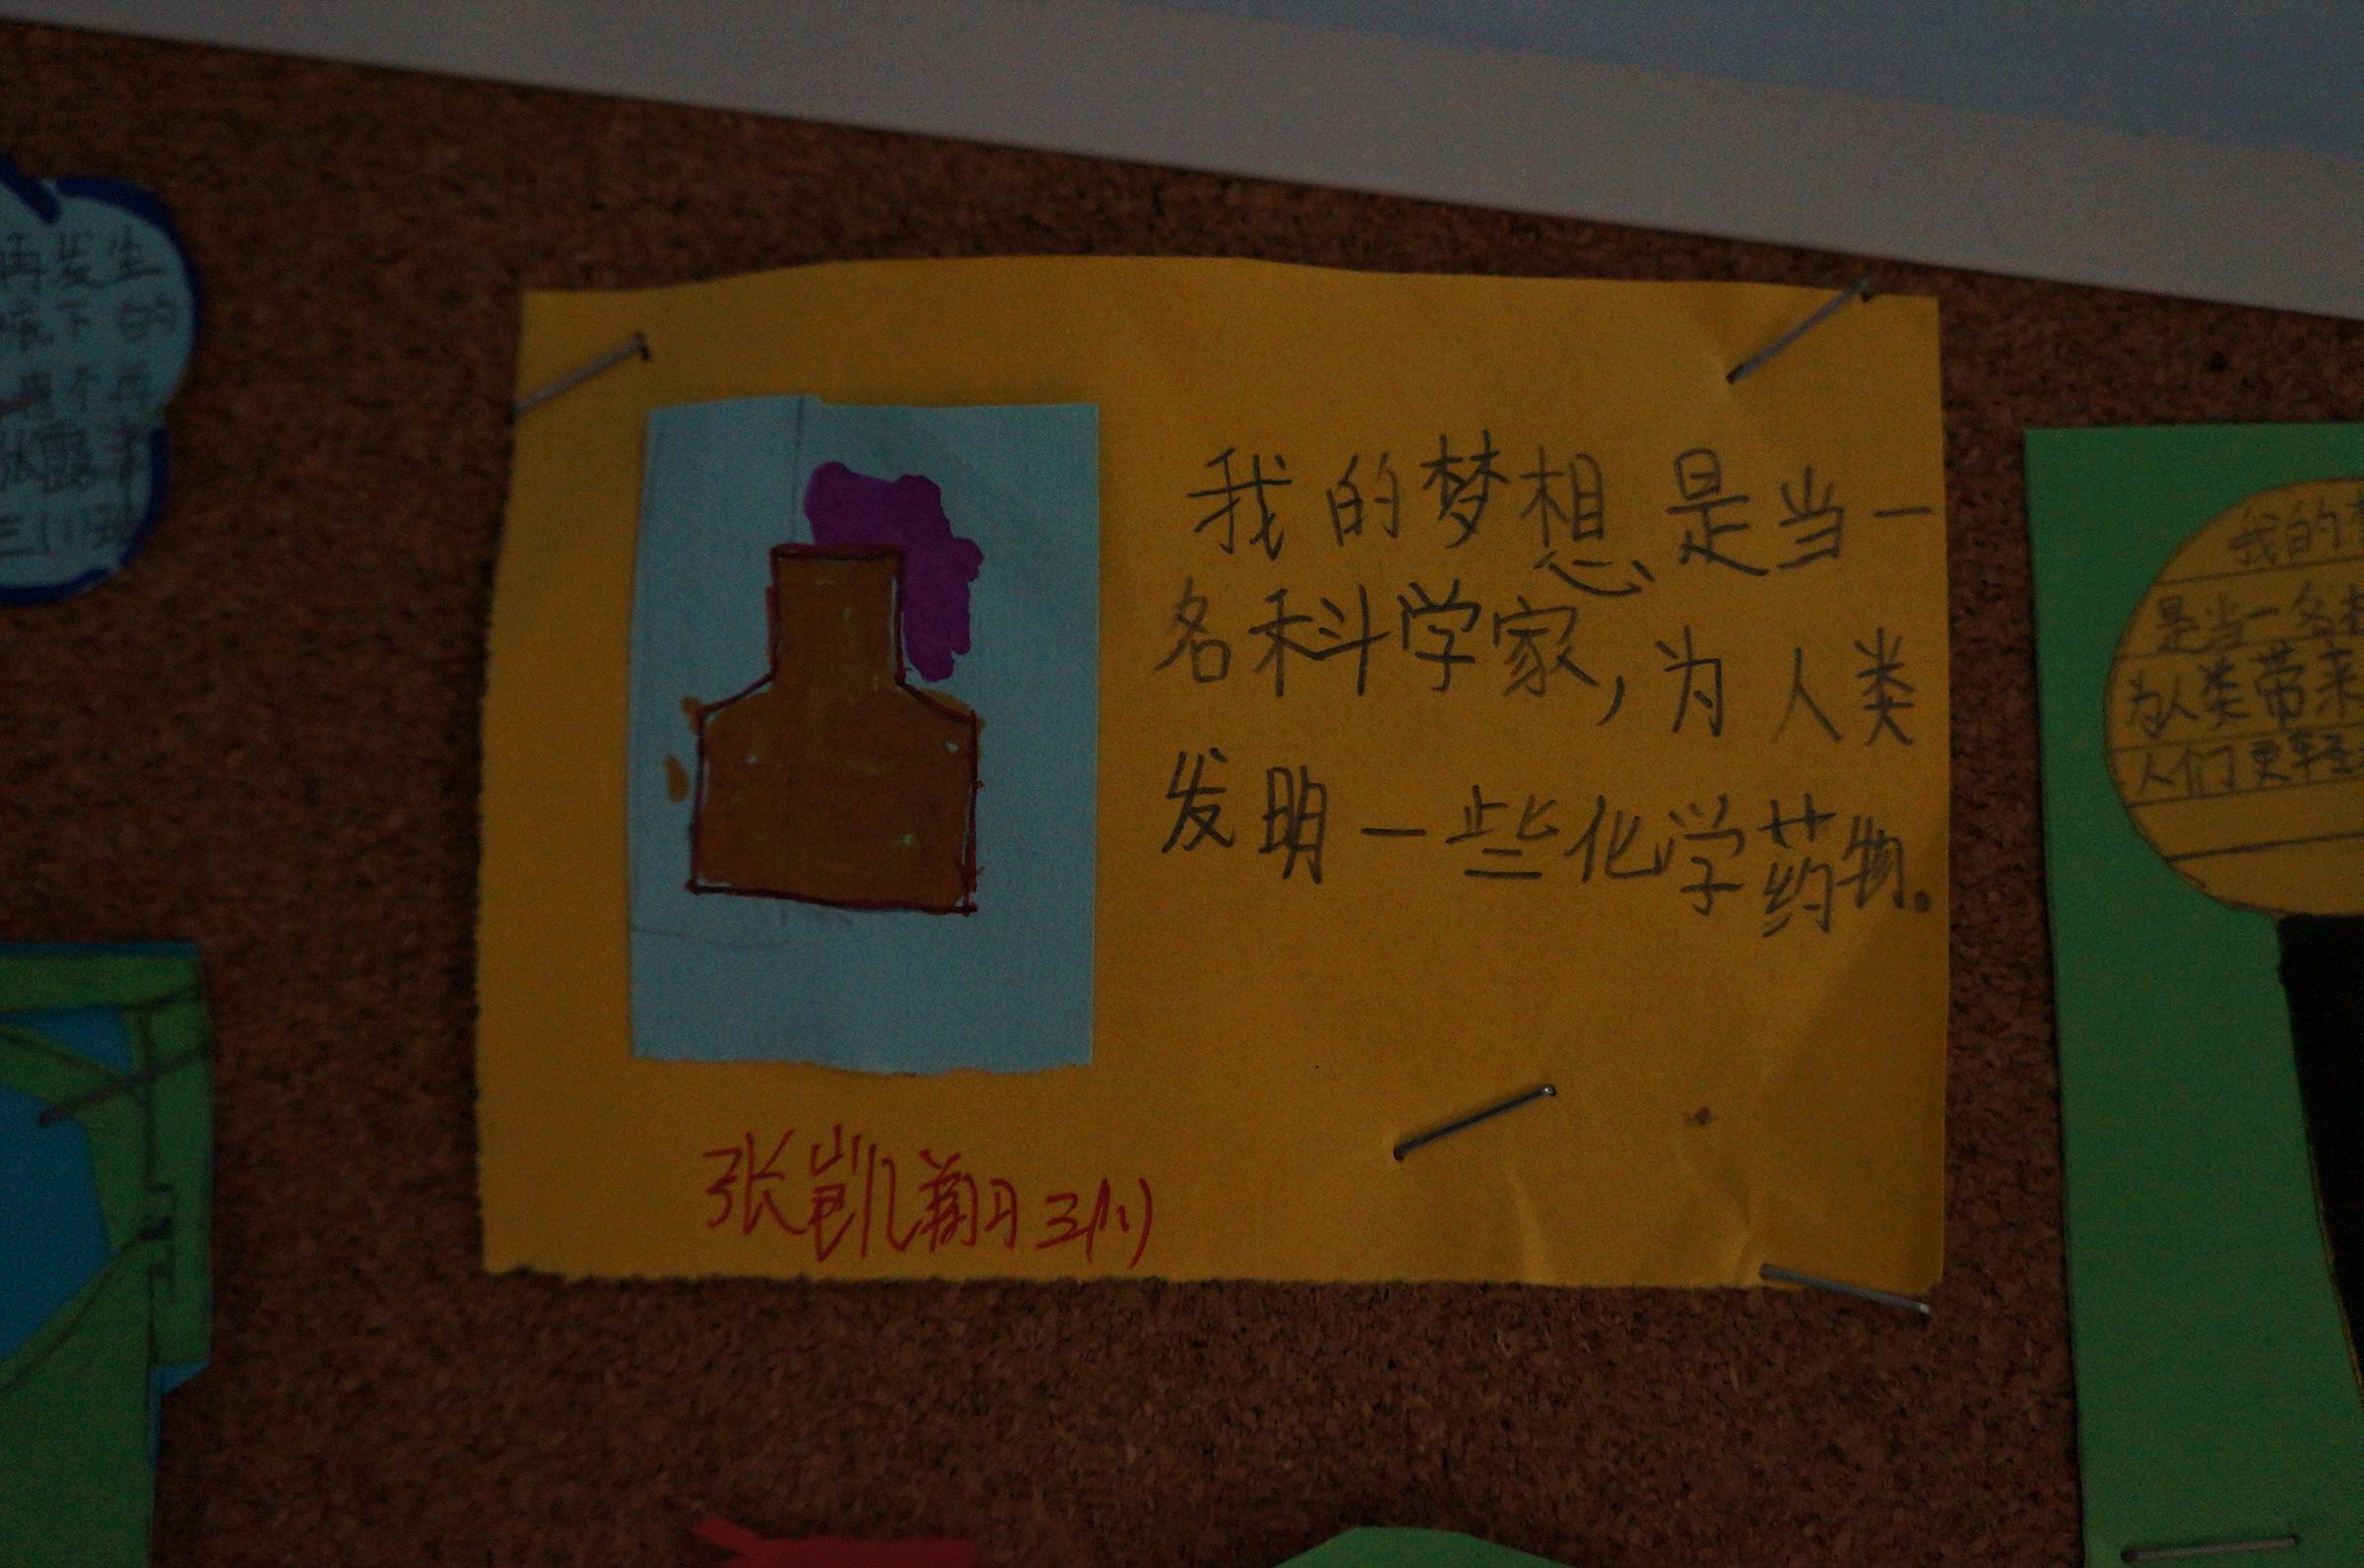 我的梦想是当一
名科学家,为人类
发明一些化学药物。
张凯翔三(1)
再发生
痕下的
再
张露
三(1)班
我的
是当一名
为人类带来
人们更轻